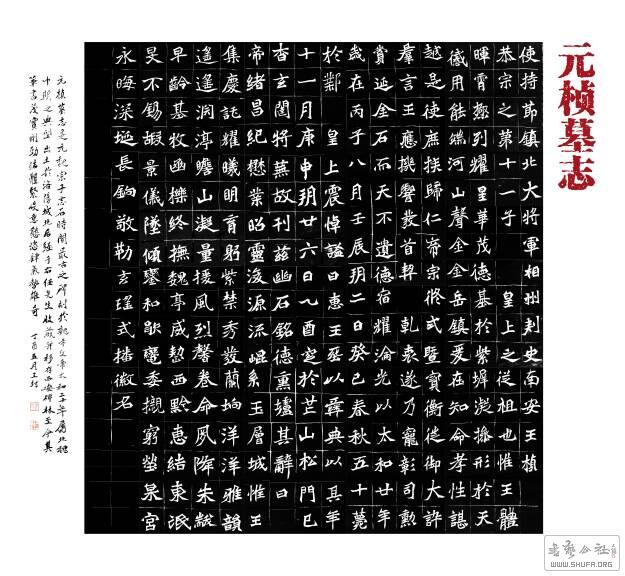 元楨墓志
使持節鎮北大將軍相州刺史南安王楨
恭宗之第十一子 皇上之從祖也惟王體
暉霄極列耀星華茂德基於紫墀凝操形於天
儀用能端河山聲金岳鎮爰在知命孝性諶
越是使庶族歸仁帝宗攸式暨寶衡徙御大訊
羣言王應機響發首契 乾衷遂乃寵彰司勳
賞延金石而天不遺德宿耀淪光以太和廿年
歲在丙子八月壬辰朔二日癸巳春秋五十薨
於鄴 皇上震悼諡曰惠王葬以彝典以其年
十一月庚申朔廿六日窆於芒山松門已
杳玄闥將蕪故刊茲幽石銘德熏壚其辭曰
帝緒昌紀懋業昭靈浚源流崐系玉層城惟王
集慶託耀曦明育躬紫禁秀發蘭坰洋洋雅韻
遙遙淵渟瞻山凝量援風烈馨卷命夙降朱黻
早齡基牧函櫟終撫魏亭威懾西黔惠結東氓
旻不錫嘏景儀墜傾鑾和歇轙委櫬窮塋泉宮
永晦深埏長扃敬勒玄瑤式播徽名
元楨墓志是元魏宗子志石時間最古之碑刻於魏孝文帝太和二十年屬北魏
中期之典型出土於洛陽城北后經于右任先生收藏并移存西安碑林至今其
筆畫茂實剛勁結體緊峻意態恣肆氣勢雄奇 丁酉五月王
書藝公社
WWW.SHUFA.ORG